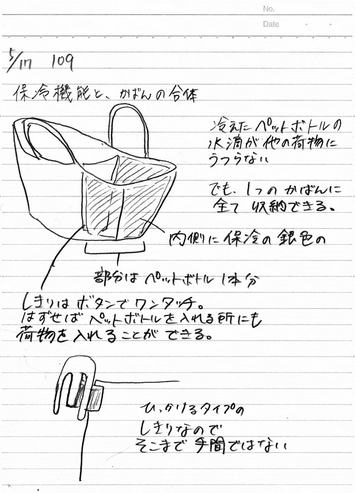 No.
Date
5/17 109
保冷機能と、かばんの合体
冷えたペットボトルの
水滴が他の荷物に
うつらない
でも、1つのかばんに
全て収納できる。
内側に保冷の銀色の
部分はペットボトル1本分
しきりはボタンでワンタッチ。
はずせばペットボトルを入れる所にも
荷物を入れることができる。
ひっかけるタイプの
しきりなので
そこまで手間ではない